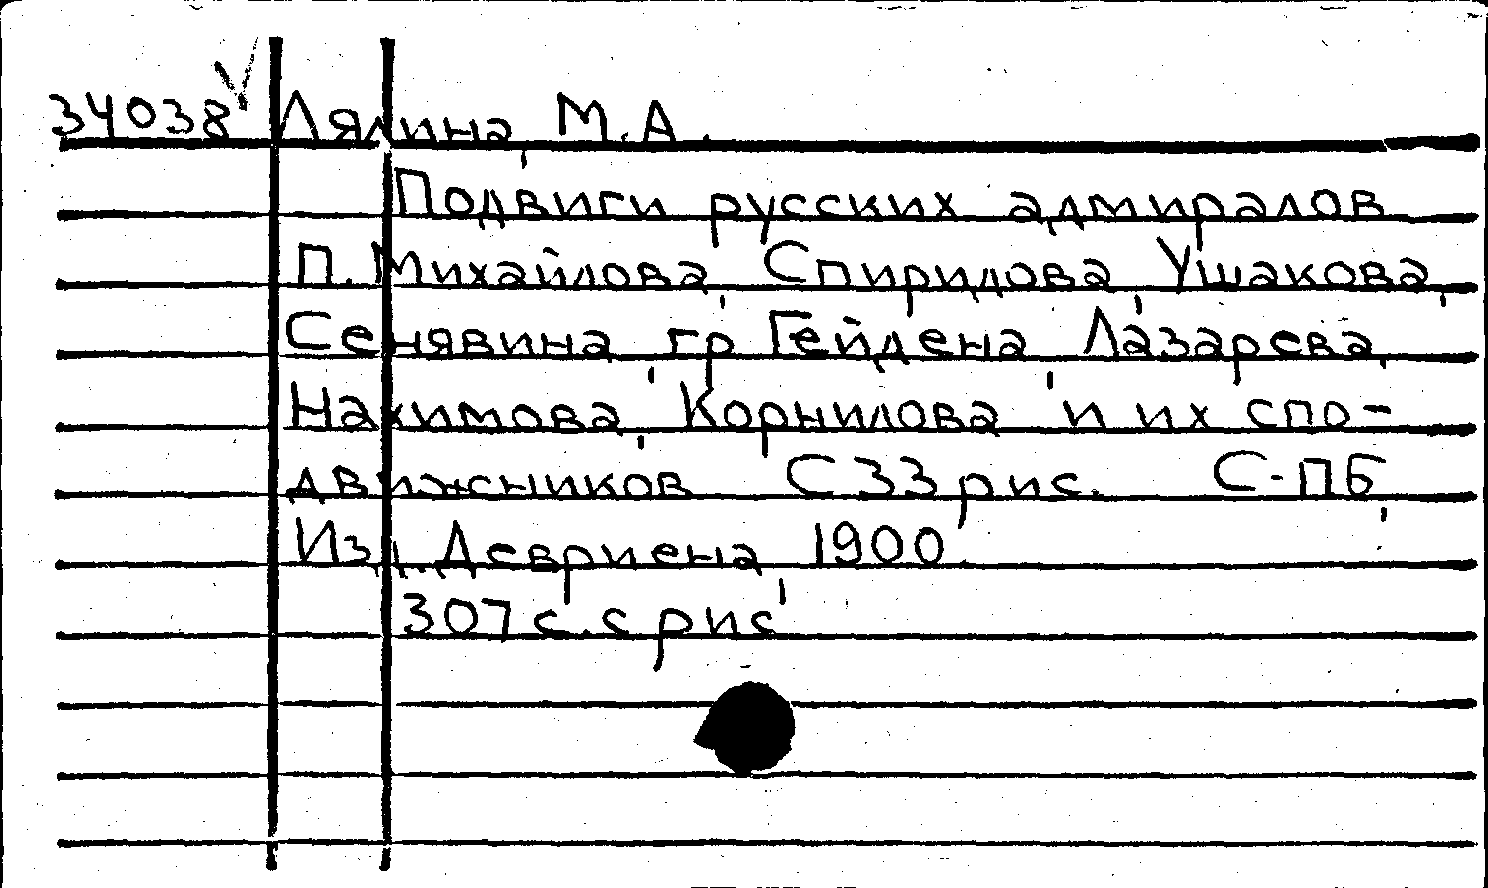 34038 Лялина, М.А.
Подвиги русских адмиралов
П. Михайлова, Спиридова, Ушакова,
Сенявина, гр Гейдена, Лазарева,
Нахимова, Корнилова и их спо-
движсников С 33 рис. С-ПБ,
Изд. Девриена, 1900.
307 с. с рис